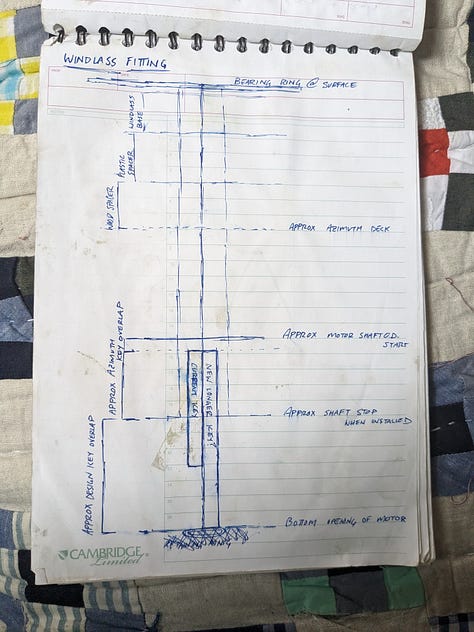 WINDLASS FITTING
BEARING RING @ SURFACE
WINDLASS
BASE
PLASTIC
SPACER
WOOD SPACER
APPROX AZIMUTH DECK
APPROX AZIMUTH
KEY OVERLAP
APPROX MOTOR SHAFT O.D.
START
CURRENT KEY
NEW LONGER KEY
APPROX SHAFT STOP
WHEN INSTALLED
APPROX DESIGN KEY OVERLAP
BOTTOM OPENING OF MOTOR
CAMBRIDGE
Limited